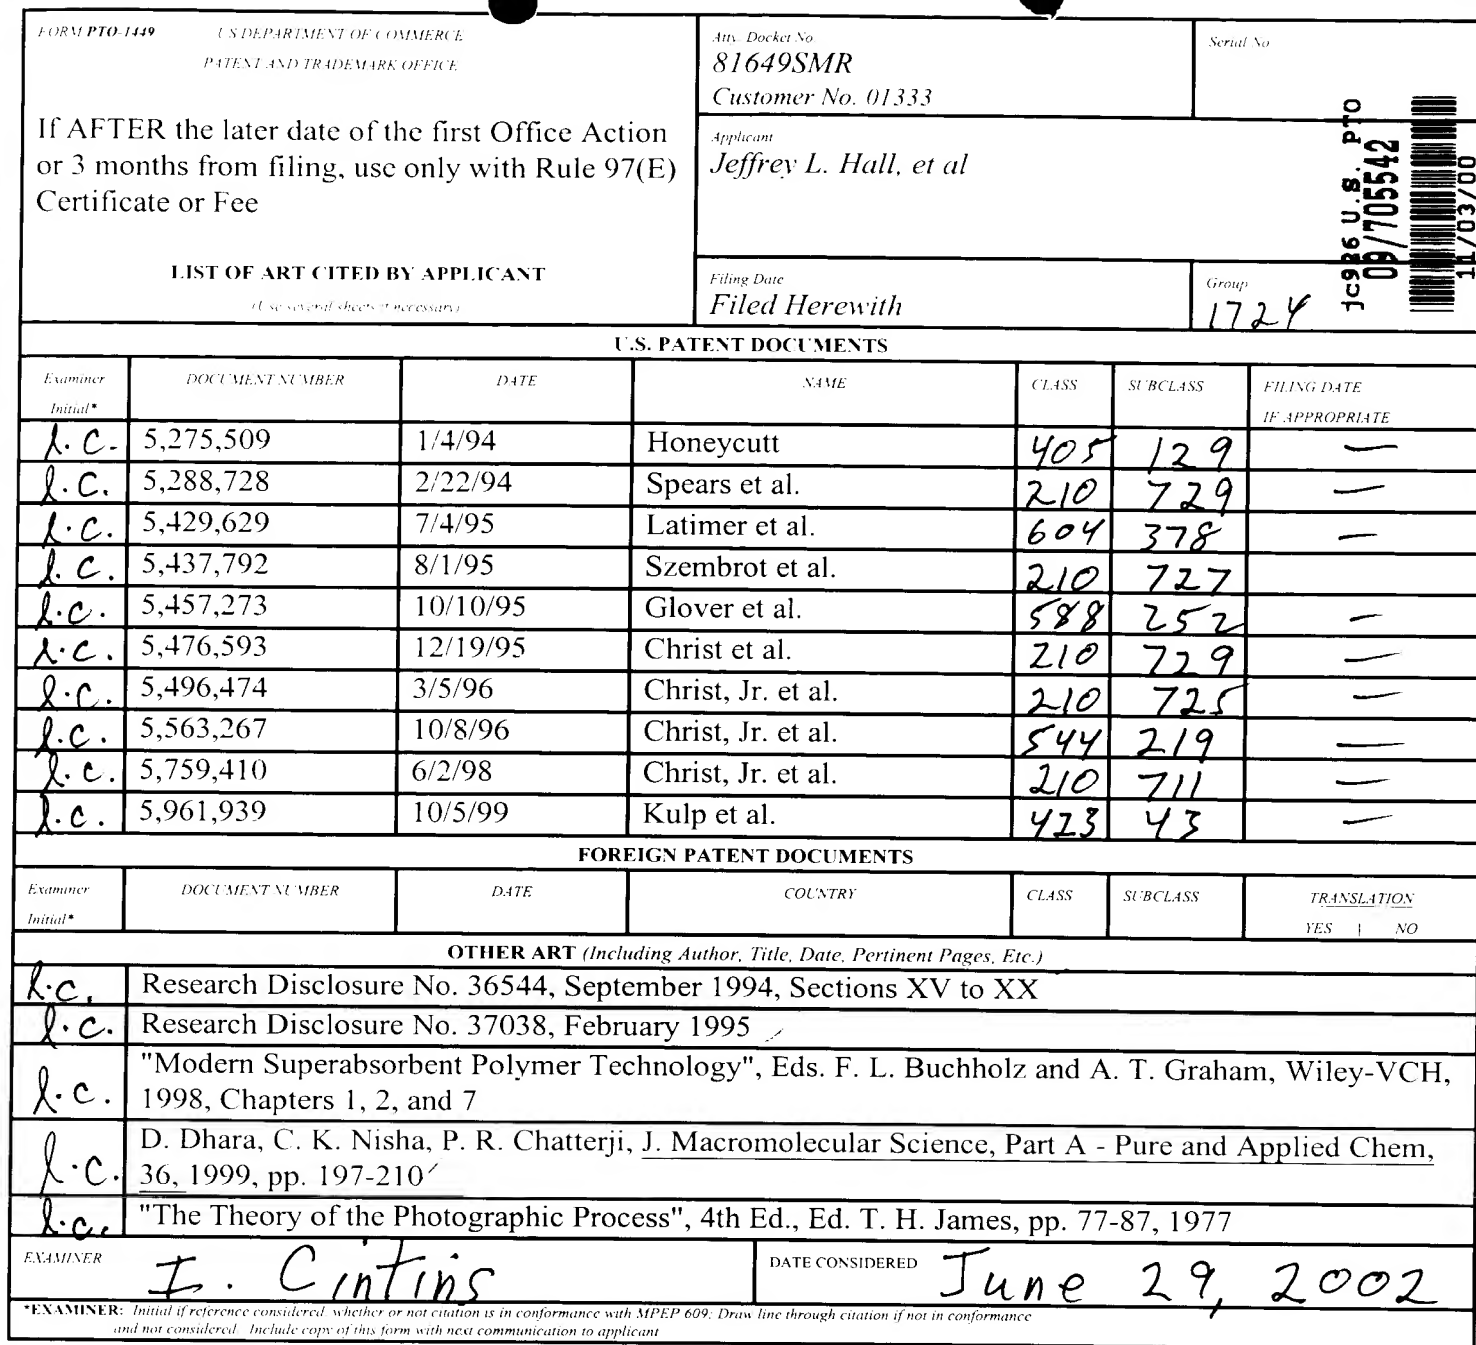 FORM PTO-1449 U S DEPARTMENT OF COMMERCE
PATENT AND TRADEMARK OFFICE
If AFTER the later date of the first Office Action
or 3 months from filing, use only with Rule 97(E)
Certificate or Fee
LIST OF ART CITED BY APPLICANT
(Use several sheets if necessary)
Atty. Docket No
81649SMR
Customer No. 01333
Serial No
Applicant
Jeffrey L. Hall, et al
Filing Date
Filed Herewith
Group
1724
jc926 U.S. PTO
09/705542
11/03/00
U.S. PATENT DOCUMENTS
Examiner Initial* DOCUMENT NUMBER DATE NAME CLASS SUBCLASS FILING DATE IF APPROPRIATE
I.C. 5,275,509 1/4/94 Honeycutt 405 129 —
I.C. 5,288,728 2/22/94 Spears et al. 210 729 —
I.C. 5,429,629 7/4/95 Latimer et al. 604 378 —
I.C. 5,437,792 8/1/95 Szembrot et al. 210 727
I.C. 5,457,273 10/10/95 Glover et al. 588 252 —
I.C. 5,476,593 12/19/95 Christ et al. 210 729 —
I.C. 5,496,474 3/5/96 Christ, Jr. et al. 210 725 —
I.C. 5,563,267 10/8/96 Christ, Jr. et al. 544 219 —
I.C. 5,759,410 6/2/98 Christ, Jr. et al. 210 711 —
I.C. 5,961,939 10/5/99 Kulp et al. 423 43 —
FOREIGN PATENT DOCUMENTS
Examiner Initial* DOCUMENT NUMBER DATE COUNTRY CLASS SUBCLASS TRANSLATION
YES | NO
OTHER ART (Including Author, Title, Date, Pertinent Pages, Etc.)
I.C. Research Disclosure No. 36544, September 1994, Sections XV to XX
I.C. Research Disclosure No. 37038, February 1995
I.C. "Modern Superabsorbent Polymer Technology", Eds. F. L. Buchholz and A. T. Graham, Wiley-VCH,
1998, Chapters 1, 2, and 7
I.C. D. Dhara, C. K. Nisha, P. R. Chatterji, J. Macromolecular Science, Part A - Pure and Applied Chem,
36, 1999, pp. 197-210
I.C. "The Theory of the Photographic Process", 4th Ed., Ed. T. H. James, pp. 77-87, 1977
EXAMINER I. Cintins DATE CONSIDERED June 29, 2002
*EXAMINER: Initial if reference considered, whether or not citation is in conformance with MPEP 609; Draw line through citation if not in conformance
and not considered. Include copy of this form with next communication to applicant